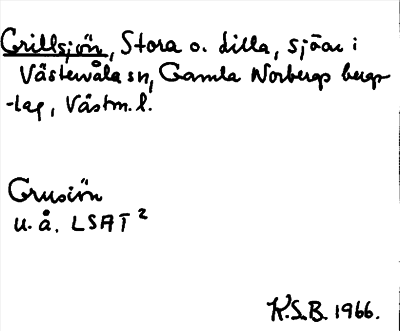 Grillsjön, Stora o. Lilla, sjöar i
Västervåla sn, Gamla Norbergs bergs-
-lag, Västm. l.
Grusiön
u. å. LSAT 2
K.S.B. 1966.